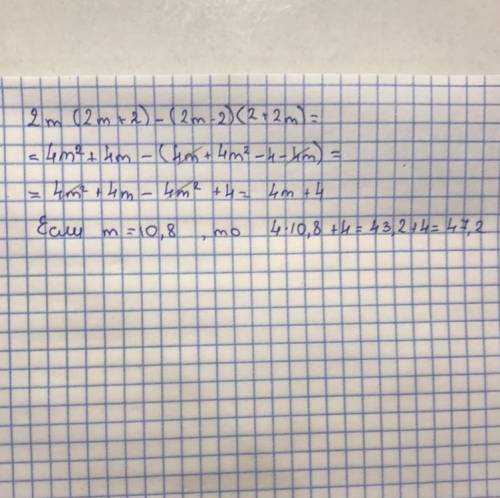 2m (2m+2) - (2m-2)(2+2m) =
= 4m² + 4m - (4m + 4m² - 4 - 4m) =
= 4m² + 4m - 4m² + 4 = 4m + 4
Если m = 10,8 , то 4·10,8 + 4 = 43,2 + 4 = 47,2